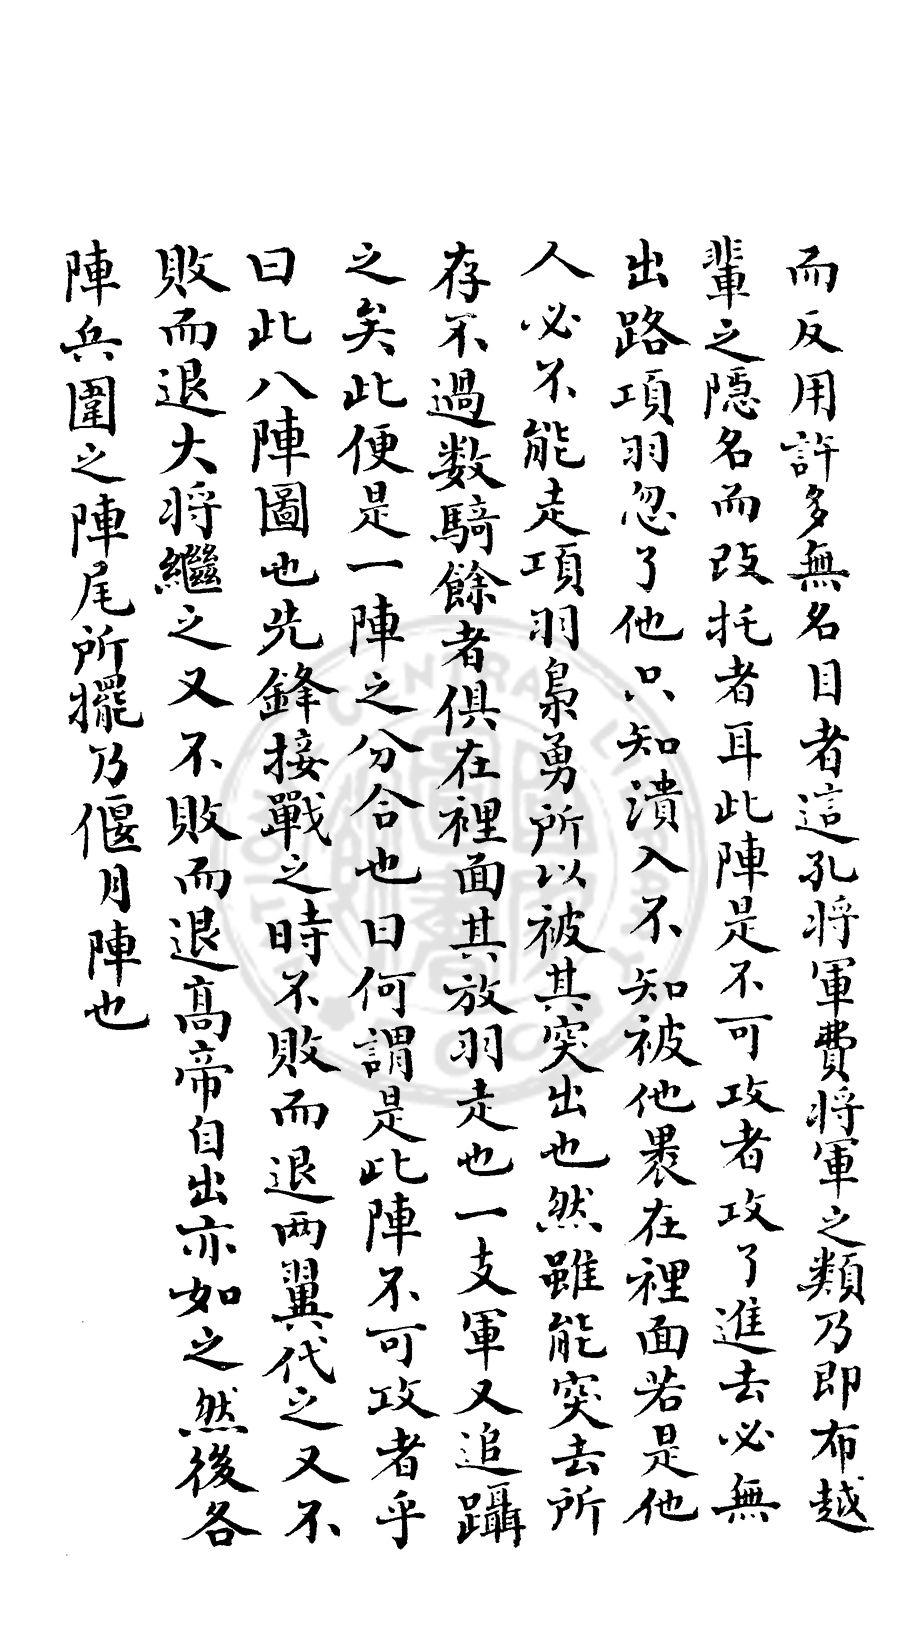 而反用許多無名目者這孔將軍費將軍之類乃即布越
輩之隱名而改托者耳此陣是不可攻者攻了進去必無
出路項羽忽了他只知潰入不知被他裹在裡面若是他
人必不能走項羽梟勇所以被其突出也然雖能突去所
存不過数騎餘者俱在裡面其放羽走也一支軍又追躡
之矣此便是一陣之分合也曰何謂是此陣不可攻者乎
曰此八陣圖也先鋒接戰之時不敗而退两翼代之又不
敗而退大将繼之又不敗而退高帝自出亦如之然後各
陣兵圍之陣尾所擺乃偃月陣也
NATIONAL CENTRAL LIBRARY